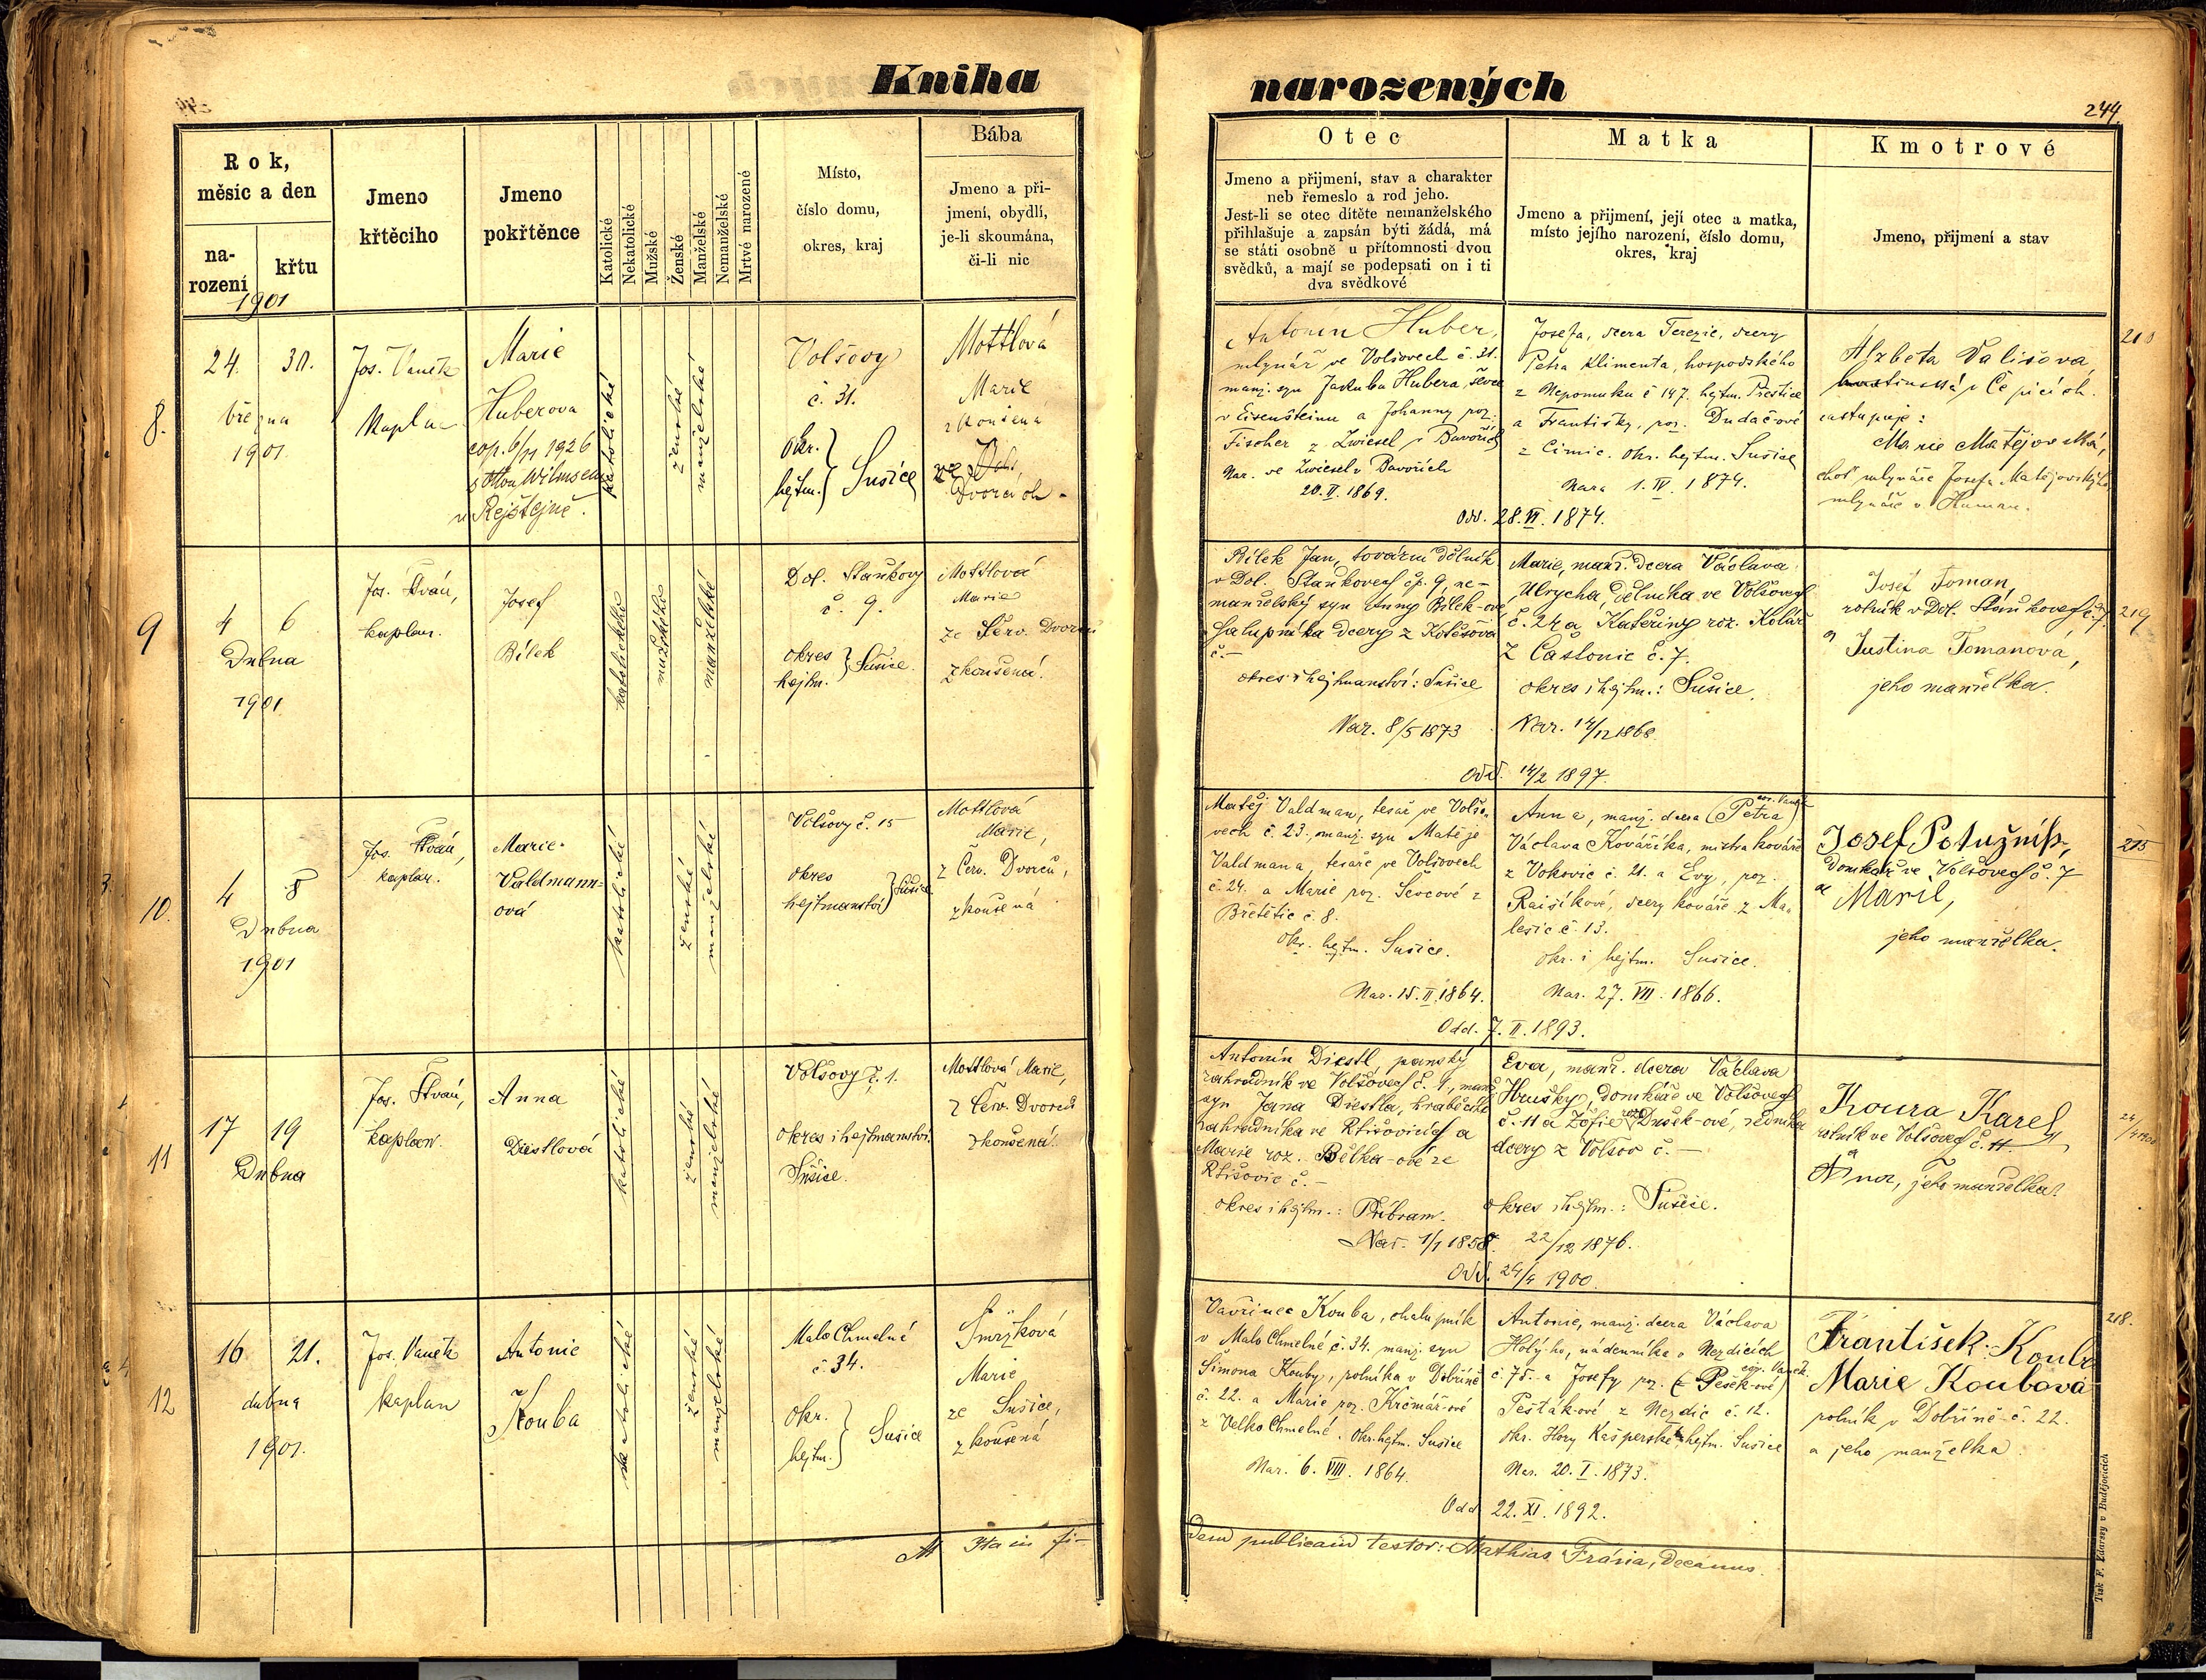 Kniha
Rok,
měsíc a den
na-
rození
křtu
Jmeno
křtěcího
Jmeno
pokřtěnce
Katolické
Nekatolické
Mužské
Ženské
Manželské
Nemanželské
Mrtvé narozené
Místo,
číslo domu,
okres, kraj
Bába
Jmeno a při-
jmení, obydlí,
je-li skoumána,
či-li nic
1901
8.
24. 30.
března
1901.
Jos. Vaněk
kaplan
Marie
Huberova
cop. 6/11 1926
s Otton Wilmsem
v Rejštejně.
katolické
ženské
manželské
Volšovy
č. 31.
okr.
hejtm. } Sušice
Mottlová
Marie
zkoušena
ze
Dvorců
9
4 6
Dubna
1901
Jos. Šváň,
kaplan.
Josef
Bílek
katolického
mužského
manželské
Dol. Staňkovy
č. 9.
okres
hejtm. } Sušice.
Mottlová
Marie
ze Červ. Dvorců
zkoušená.
10.
4 8
Dubna
1901
Jos. Šváň,
kaplan.
Marie
Valdmann-
ová
katolické
ženské
manželské
Volšovy č. 15
okres
hejtmanství } Sušice
Mottlová
Marie,
z Červ. Dvorců,
zkoušená
11
17 19
Dubna
Jos. Šváň,
kaplan.
Anna
Diestlová
katolické
ženské
manželské
Volšovy č. 1.
okres i hejtmanství
Sušice.
Mottlová Marie,
z Červ. Dvorců
zkoušená.
12
16 21.
dubna
1901.
Jos. Vaněk
kaplan
Antonie
Kouba
katolické
ženské
manželské
Malo Chmelné
č. 34.
okr.
hejtm. } Sušice
Smržková
Marie
ze Sušice,
zkoušená
Ita in fi-
narozených
244
Otec
Jmeno a přijmení, stav a charakter
neb řemeslo a rod jeho.
Jest-li se otec dítěte nemanželského
přihlašuje a zapsán býti žádá, má
se státi osobně u přítomnosti dvou
svědků, a mají se podepsati on i ti
dva svědkové
Matka
Jmeno a přijmení, její otec a matka,
místo jejího narození, číslo domu,
okres, kraj
Kmotrové
Jmeno, přijmení a stav
Antonín Huber,
mlynář ve Volšovech č. 31.
manž. syn Jakuba Hubera, ševce
v Eisenšteinu a Johanny roz.
Fischer z Zwiesel v Bavořích
Nar. ve Zwiesel v Bavořích
20. II. 1869.
Josefa, dcera Terezie, dcery
Petra Klimenta, hospodského
z Nepomuku č 147. hejtm. Přeštice
a Františky, roz. Dudačové
z Čimic. okr. hejtm. Sušice
Nar. 1. IV. 1874.
Odd. 28. VI. 1874.
Alžběta Vališova,
hostinská v Čepicích.
zastupuje:
Marie Matějovská,
choť mlynáře Josefa Matějovského
mlynáře v
Bílek Jan, tovární dělník
v Dol. Staňkovech čp. 9, ne-
manželský syn Anny Bílek-ové,
chalupníka dcery z Kotěšova
č. —
okres i hejtmanství: Sušice
Nar. 8/5 1873
Marie, manž. dcera Václava
Ulrycha, dělníka ve Volšovech
č. 24 a Kateřiny roz. Kolář
z Častonic č. 7.
okres i hejtm.: Sušice.
Nar. 14/12 1868.
Odd. 14/2 1897.
Josef Toman,
rolník v Dol. Staňkovech č. 7.
a Justina Tomanová,
jeho manželka.
219
Matěj Valdman, tesař ve Volšo-
vech č. 23., manž. syn Matěje
Valdmana tesaře ve Volšovech
č. 24. a Marie roz. Ševcové z
Břetětic č. 8.
okr. hejtm. Sušice.
Nar. 15. II. 1864.
Anna, manž. dcera (Petra)
Václava Kováříka, mistra kováře
z Vokovic č. 21. a Evy, roz.
Raisíkové, dcery kováře z Ma-
lesic č. 13.
okr. i hejtm. Sušice.
Nar. 27. VII. 1866.
Odd. 7. II. 1893.
Josef Potužník,
Domkář ve Volšovech č. 7
a Marie,
jeho manželka.
215
Antonín Diestl, panský
zahradník ve Volšovech č. 1., manž.
syn Jana Diestla, hraběcího
zahradníka ve Rtišovicích a
Marie roz. Bělka-ové ze
Rtišovic č. —
okres i hejtm.: Příbram.
Nar. 1/1 1858.
Eva, manž. dcera Václava
Hrušky, domkáře ve Volšovech
č. 11 a Žofie roz. Dušek-ové, sedníka
dcery z Volšov č. —
okres i hejtm.: Sušice.
22/12 1876.
Odd. 24/4 1900.
Koura Karel,
rolník ve Volšovech č. 11.
a
Anna, jeho manželka.
Vavřinec Kouba, chalupník
v Malo Chmelné č. 34. manž. syn
Šimona Kouby, rolníka v Dobříně
č. 22. a Marie roz. Krčmář-ové
z Velko Chmelné. okr. hejtm. Sušice
Nar. 6. VIII. 1864.
Antonie, manž. dcera Václava
Holýho, nádenníka v Nezdicích
č. 75. a Josefy roz. (Pešek-ové)
Pešták-ové z Nezdic č. 12.
okr. Hory Kašperské hejtm. Sušice
Nar. 20. I. 1873.
Odd 22. XI. 1892.
František Kouba
Marie Koubová
rolník v Dobříně č. 22.
a jeho manželka.
218.
dem publicam testor: Mathias Frána, Decanus.
Tisk F. Zdarssy v Budějovicích